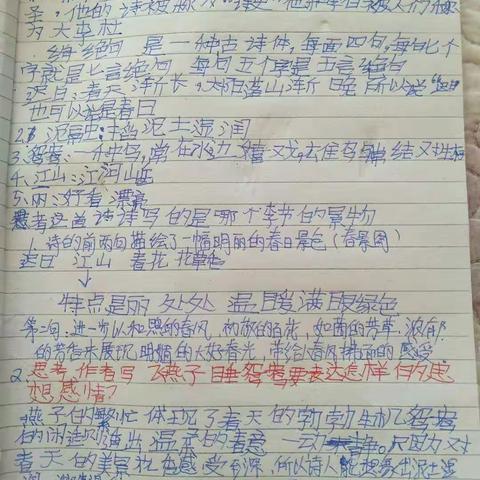 他的诗被称为
为文草杜
绝句 是一种古诗体,每面四句,每句七个
字就是七言绝句 每句五个字是五言绝句
迟日:春天渐长,太阳落山渐晚,所以说"迟日
也可以说是春日
2. 泥融:指泥土湿润
3.鸳鸯:一种鸟,常在水边嬉戏,雌雄结对
4.江山:江河山
5.丽:好看 漂亮
思考这首诗写的是哪个季节的景物
1.诗的前两句描绘了一幅明丽的春日景色(春景图)
迟日 江山 春花 花草
↓
特点是丽 处处 温暖满眼绿色
第二句:进一步以和煦的春风,初放的百花,如茵的芳草,浓郁
的芳香来展现明媚的大好春光,带给春风拂面的感受
2.思考作者写飞燕子睡鸳鸯要表达怎样的思
想感情?
燕子的繁忙体现了春天的勃勃生机鸳鸯
的闲适 出温柔的春意 一动一静
春天的美景 感受 深,所以诗人能 出泥土湿